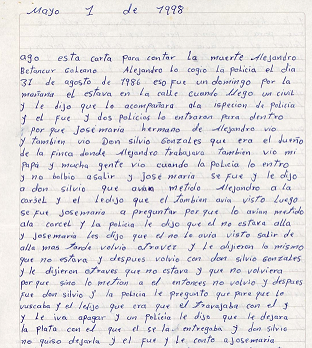 Mayo 1 de 1998
ago esta carta para contar la muerte Alejandro
Betancur Galeano Alejandro lo cogio la policia el dia
31 de agosto de 1986 eso fue un domingo por la
mañana el estava en la calle cuando llego un civil
y le dijo que lo acompañara ala ispecion de policia
y el fue y dos policios lo entraron para dentro
por que Jose maria hermano de Alejandro vio
y tambien vio Don silvio Gonzales que era el dueño
de la finca donde Alejandro trabajava tambien vio mi
Papá y mucha gente vio cuando la policia lo entro
y no bolbio asalir y Jose maria se fue y le dijo
a don silvio que avian metido Alejandro a la
carsel y el ledijo que el tambien avia visto luego
se fue Josemaria a preguntar por que lo avian metido
ala carcel y la policia le dijo que el no estava alla
y Josemaria les dijo que el no lo avia visto salir de
alla mas tarde volvio atravez y le dijeron lo mismo
que no estava y despues volvio con don silvio gonzales
y le dijeron otraves que no estava y que no volviera
por que sino lo metian a el entonces no volvio y despues
fue don silvio y la policia le pregunto que para que lo
vuscaba y el lesijo que era que el travajaba con el y
y le iva apagar y un policia le dijo que le dejara
la plata con el que el se la entregaba y don silvio
no quiso dejarla y el fue y le conto aJosemaria